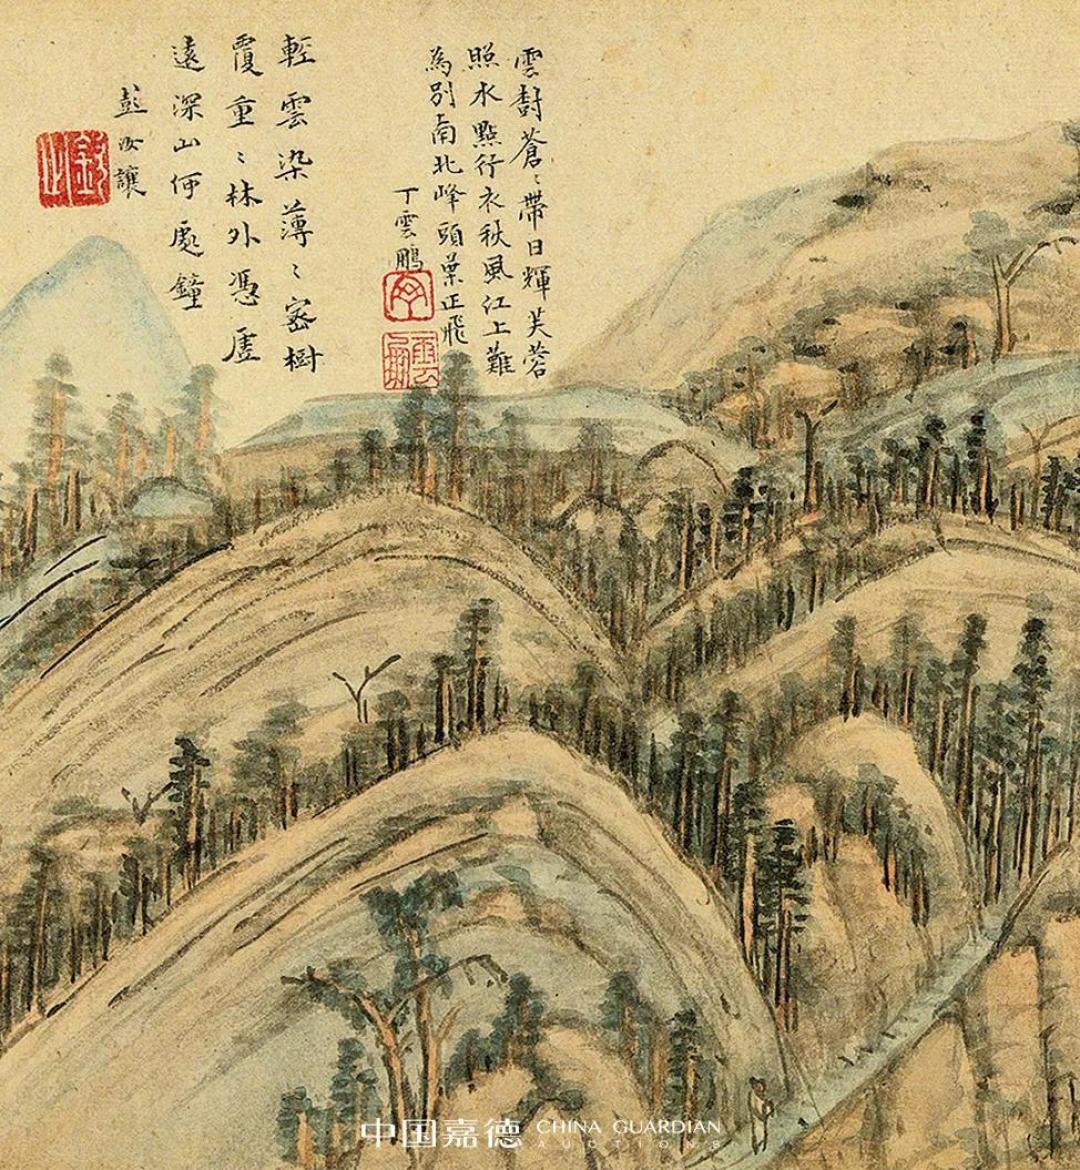 雲樹蒼〻帶日輝芙蓉
照水點行衣秋風江上難
為別南北峰頭葉正飛
丁雲鵬
雲
鵬
輕雲染薄〻密樹
覆重〻林外憑虛
遠深山何處鐘
彭汝讓
中国嘉德 CHINA GUARDIAN
AUCTIONS